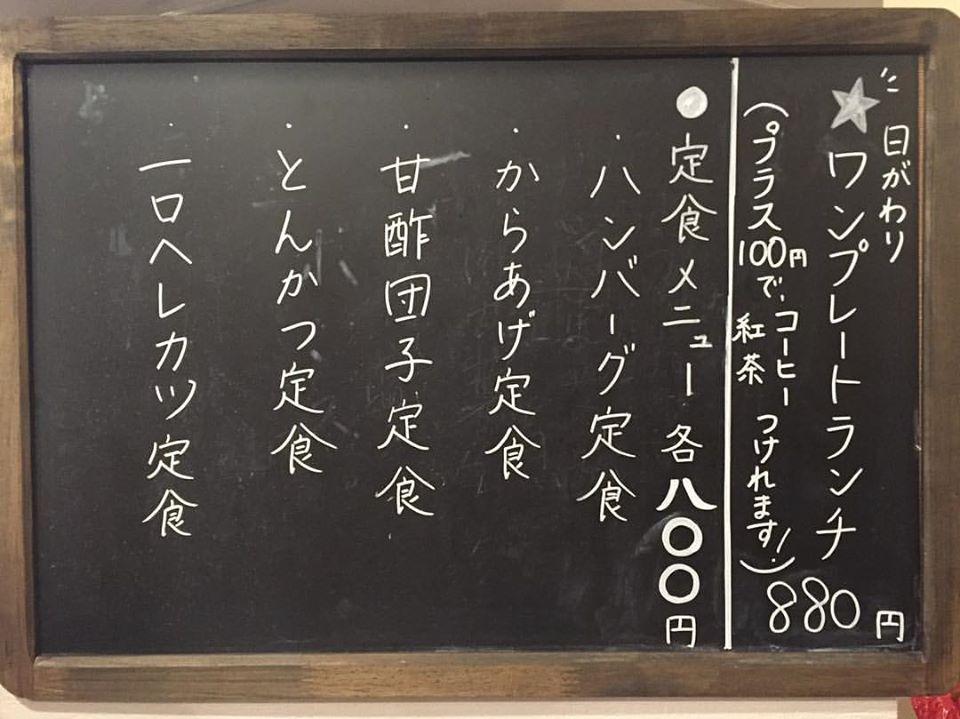 日がわり
★ワンプレートランチ 880円
(プラス100円で、コーヒー
紅茶 つけれます!)
●定食メニュー 各八〇〇円
・ハンバーグ定食
・からあげ定食
・甘酢団子定食
・とんかつ定食
・一口ヘレカツ定食